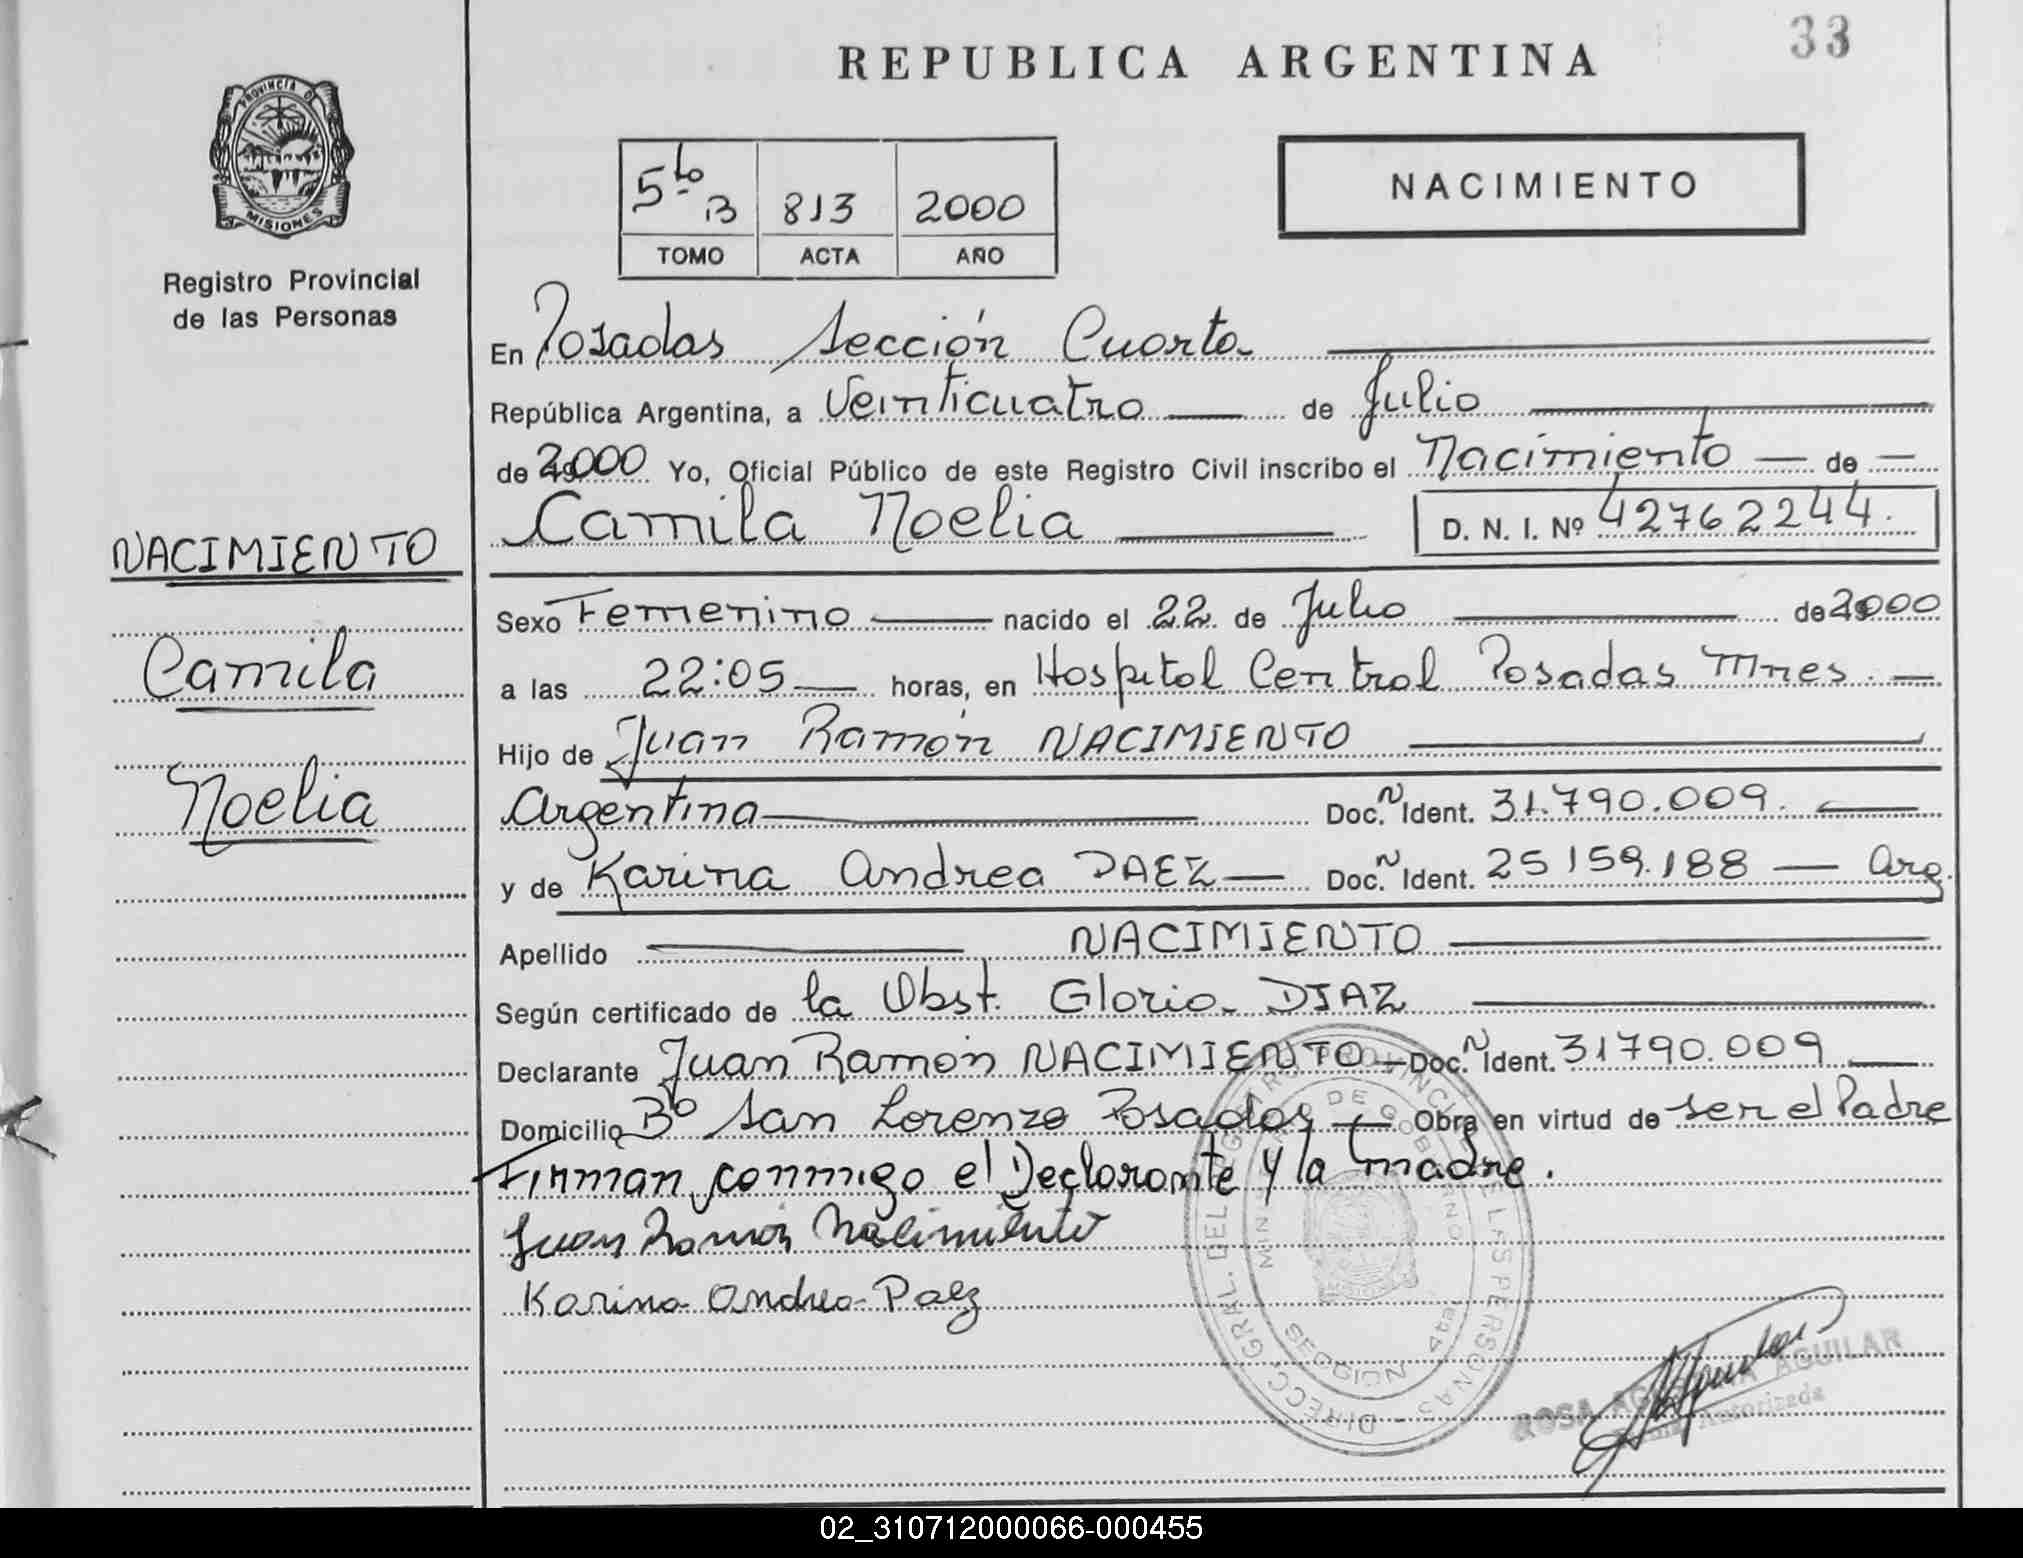 33
REPUBLICA ARGENTINA
PROVINCIA DE
MISIONES
Registro Provincial
de las Personas
5to B 813 2000
TOMO ACTA AÑO
NACIMIENTO
En Posadas Sección Cuarta
República Argentina, a Veinticuatro de Julio
de 2000 Yo, Oficial Público de este Registro Civil inscribo el Nacimiento de
Camila Noelia D. N. I. Nº 42762244.
NACIMIENTO
Camila
Noelia
Sexo Femenino nacido el 22 de Julio de 2000
a las 22:05 horas, en Hospital Central Posadas Mnes.
Hijo de Juan Ramón NACIMIENTO
Argentina Doc. N Ident. 31.790.009.
y de Karina Andrea PAEZ Doc. N Ident. 25159.188 Arg.
Apellido NACIMIENTO
Según certificado de la Obst. Gloria DIAZ
Declarante Juan Ramón NACIMIENTO Doc. N Ident. 31790.009
Domicilio Bo San Lorenzo Posadas Obra en virtud de ser el Padre
Firman conmigo el Declarante y la madre.
Juan Ramón Nacimiento
Karina Andrea Paez
DIRECC. GRAL. DEL REGISTRO PROVINCIAL DE LAS PERSONAS
MINISTERIO DE GOBIERNO
SECCION 4ta
ROSA AGUILAR
Autorizada
02_310712000066-000455